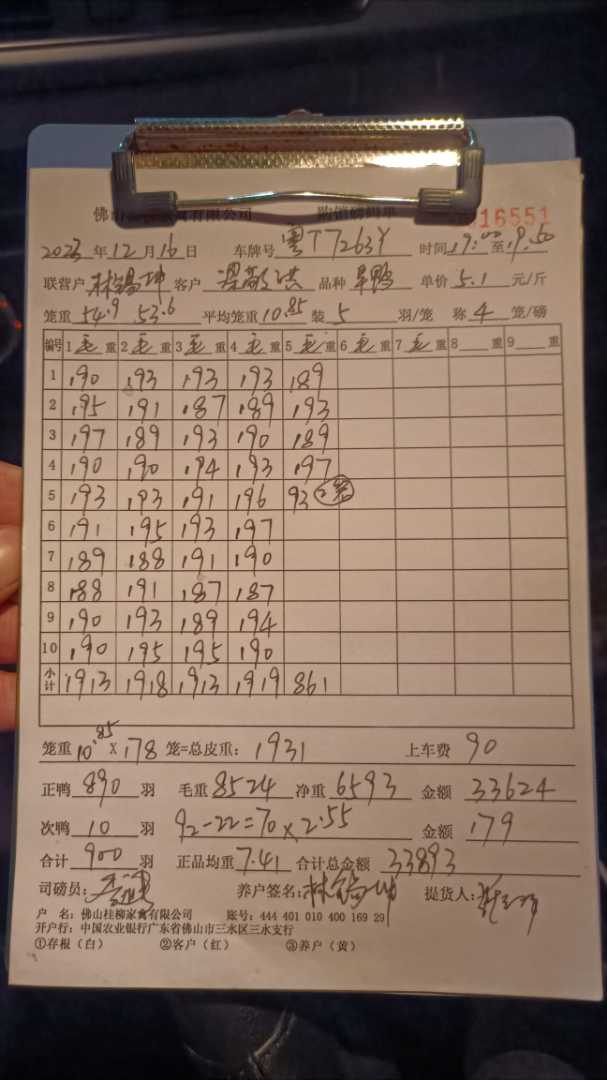 佛山 有限公司 购销磅码单 16551
2023 年 12 月 16 日 车牌号 粤T7263Y 时间 19:00 至 19:50
联营户 林锡坤 客户 品种 旱鸭 单价 5.1 元/斤
笼重 54.9 53.6 平均笼重 10.85 装 5 羽/笼 称 4 笼/磅
编号 1 毛 重 2 毛 重 3 毛 重 4 毛 重 5 毛 重 6 毛 重 7 毛 重 8 重 9 重
1 190 193 193 193 189
2 195 191 187 189 193
3 197 189 193 190 189
4 190 190 194 193 197
5 193 193 191 196 93 2笼
6 191 195 193 197
7 189 188 191 190
8 188 191 187 187
9 190 193 189 194
10 190 195 195 190
小计 1913 1918 1913 1919 861
笼重 10.85 X 178 笼=总皮重: 1931 上车费 90
正鸭 890 羽 毛重 8524 净重 6593 金额 33624
次鸭 10 羽 92-22=70×2.55 金额 179
合计 900 羽 正品均重 7.41 合计总金额 33893
司磅员: 养户签名: 林锡坤 提货人:
户 名: 佛山桂柳家禽有限公司 账号: 444 401 010 400 169 29
开户行: 中国农业银行广东省佛山市三水区三水支行
①存根（白） ②客户（红） ③养户（黄）